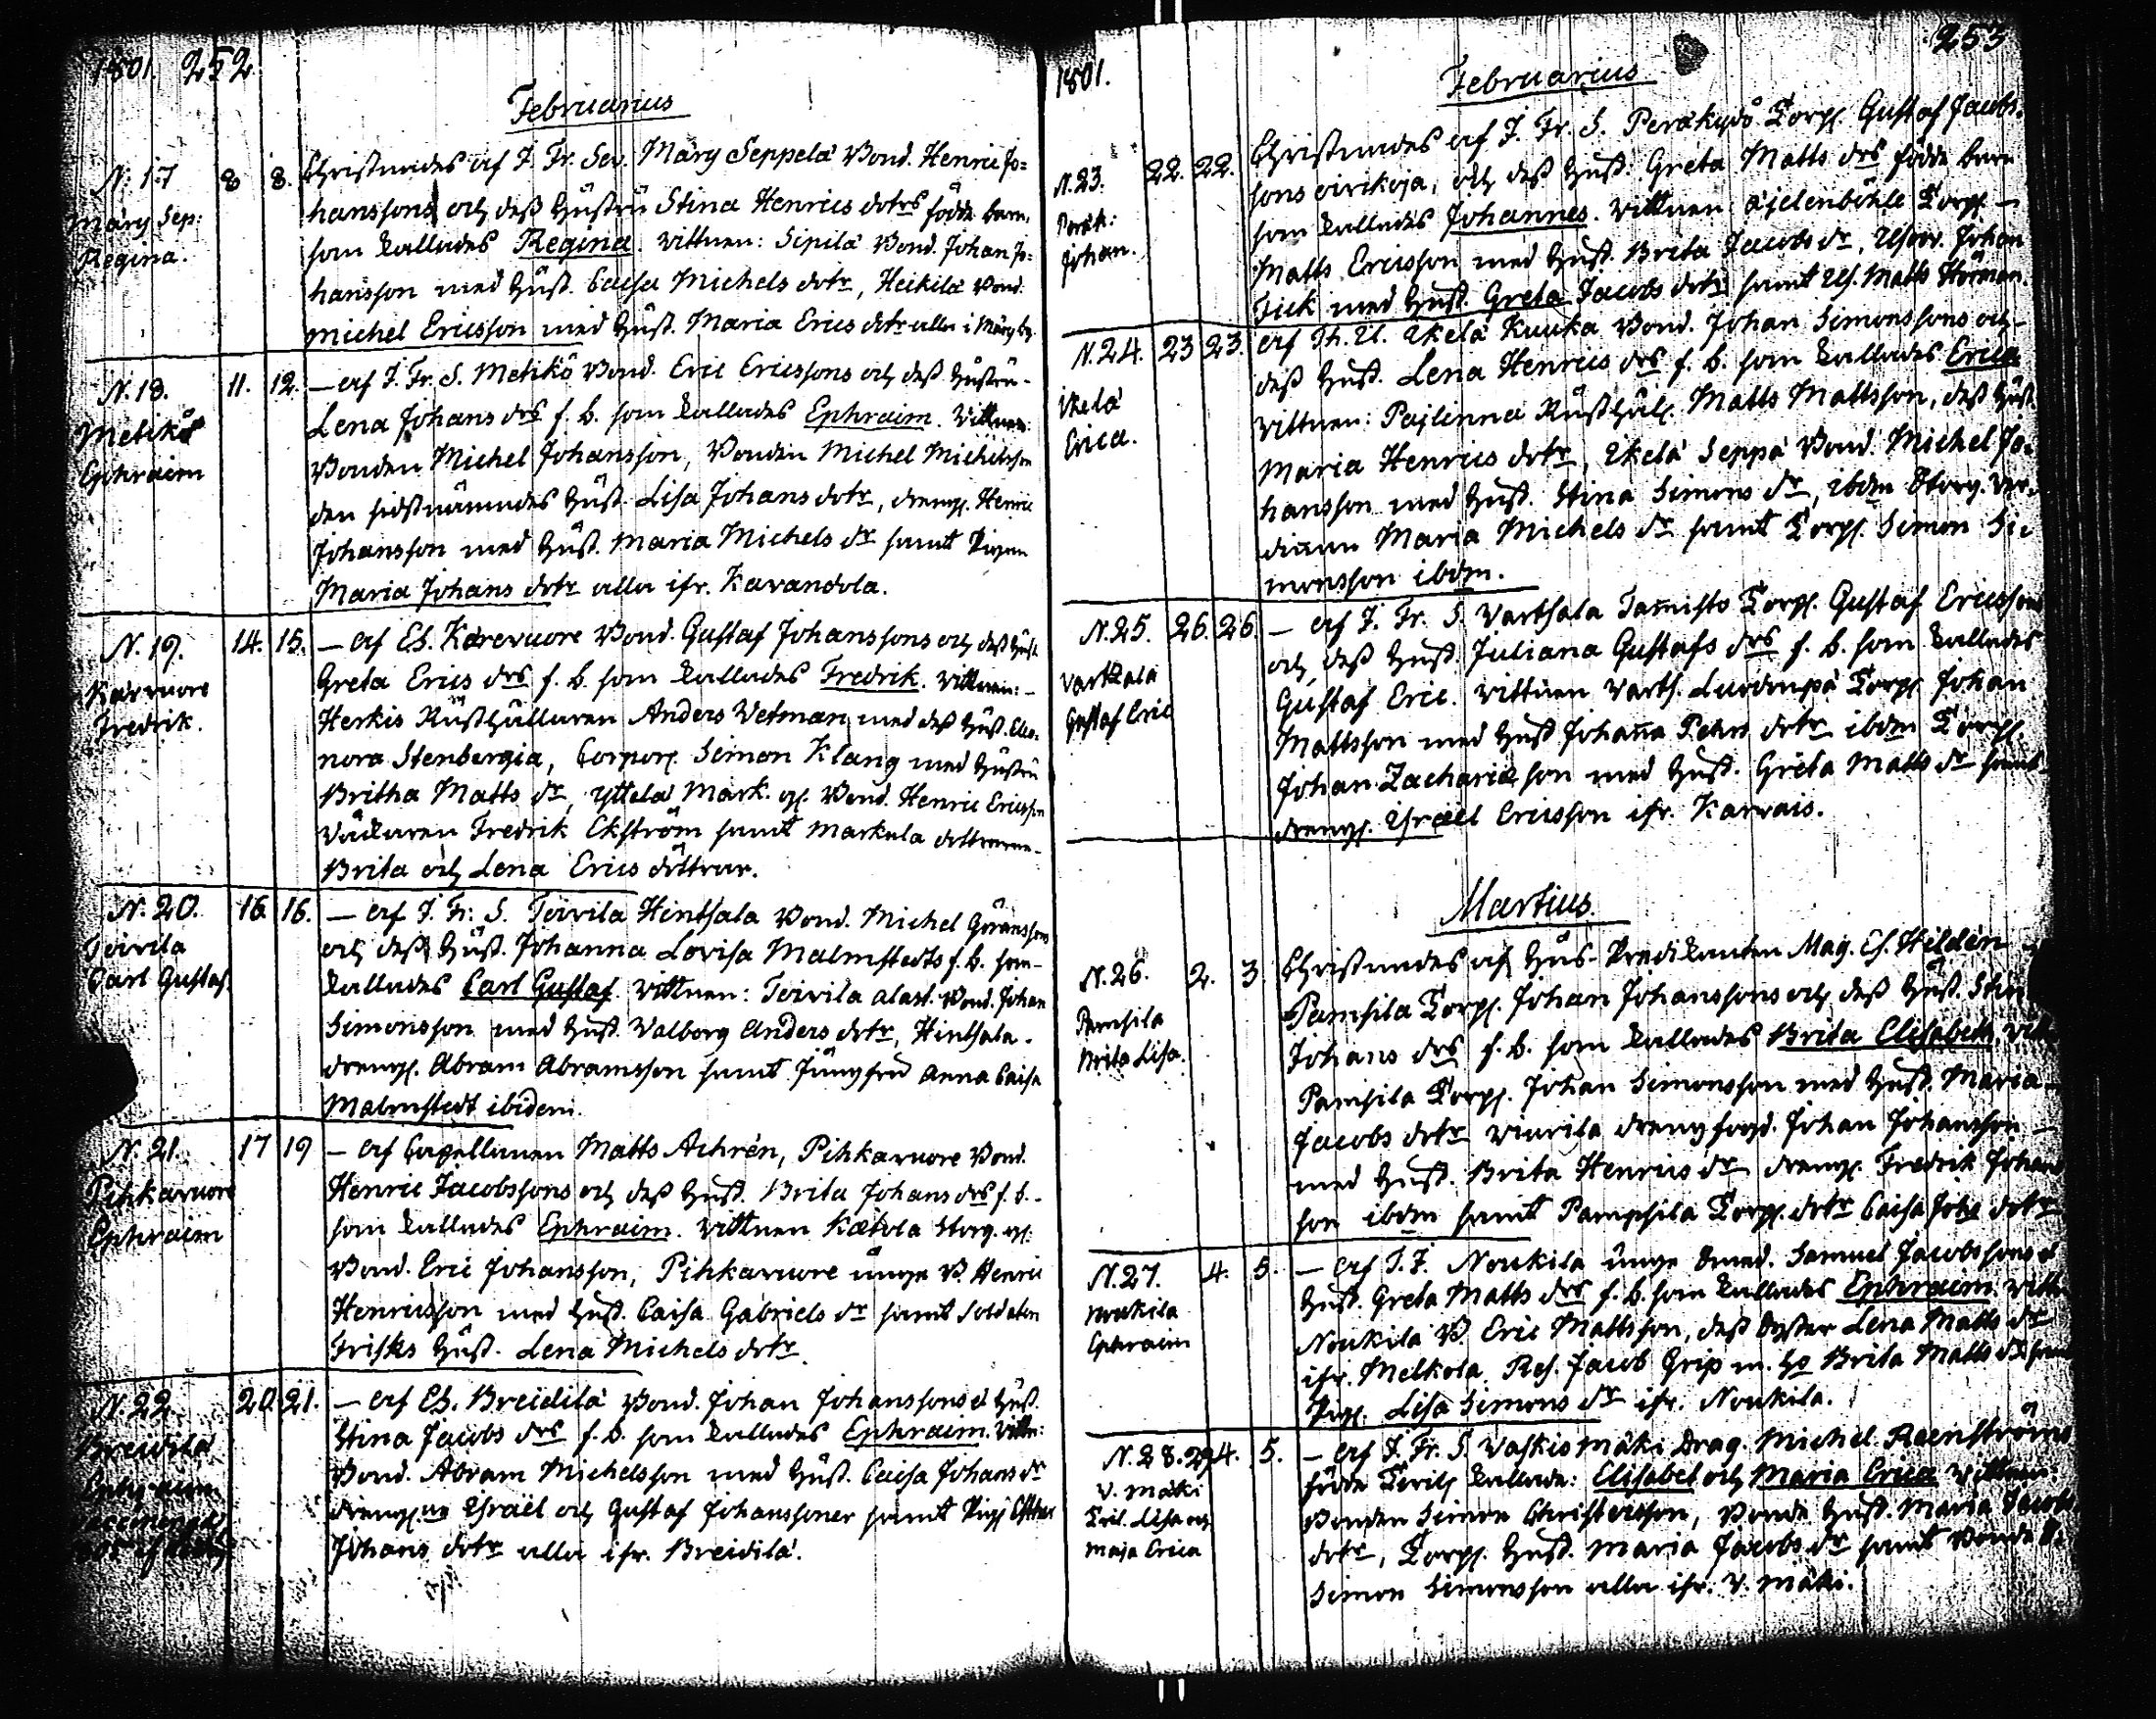 1801. 252
Februarius
N. 17 8 8. Christnades af J. Fr. Sev. Märy Seppelä Bond. Henric Jo=
Märy Sep: hanssons och deß Hustru Stina Henrics dotrs födde barn,
Regina. som kallades Regina. Vittnen: Sipilä Bond. Johan Jo=
hansson med Hust. Caisa Michels dotr, Heikilä Bond.
Michel Ericsson med Hust. Maria Erics dotr alla i Märy by.
N. 18. 11. 12. — af J. Fr. S. Metikö Bond. Eric Ericssons och deß Hustru
Metikö Lena Johans drs f. b. som kallades Ephraim. Vittnen
Ephraim Bonden Michel Johansson, Bonden Michel Michelsson
den sidstnämndes Hust. Lisa Johans dotr, drengen Henric
Johansson med Hust. Maria Michels dr samt Pigan
Maria Johans dotr alla ifr. Kavandola.
N. 19. 14. 15. — af Es. Kärevuore Bond. Gustaf Johanssons och deß Hust.
Kärvuore Greta Erics drs f. b. som kallades Fredrik. Vittnen: —
Fredrik. Herkis Rusthållaren Anders Vetman med deß Hust. Eleo=
nora Stenbergia, Corpor. Simon Klang med Hustru
Britha Matts dr, Yttelä Mark. Bond. Henric Ericsson
Fredrik Ekström samt Markula döttrarne
Brita och Lena Erics döttrar.
N. 20. 16 16. — af J. Fr. S. Toivila Hinthala Bond. Michel Göranssons
Toivila och deß Hust. Johanna Lovisa Malmstedts f. b. som
Carl Gustaf. kallades Carl Gustaf. Vittnen: Toivila alast. Bond. Johan
Simonsson med Hust. Valborg Anders dotr, Hinthala
drengen Abram Abramsson samt Jungfru Anna Caisa
Malmstedt ibidem.
N. 21. 17 19 — af Capellanen Matts Achrén, Pihkavuore Bond.
Pihkavuore Henric Jacobssons och deß Hust. Brita Johans drs f. b.
Ephraim som kallades Ephraim. Vittnen Katola Storg.
Bond. Eric Johansson, Pihkavuore unge B. Henric
Henricsson med Hust. Caisa Gabriels dr samt Soldaten
Frisks Hust. Lena Michels dotr.
N. 22. 20. 21. — af Es. Breidilä Bond. Johan Johanssons et Hust.
Breidilä Stina Jacobs drs f. b. som kallades Ephraim. Vittn:
Ephraim Bond. Abram Michelsson med Hust. Caisa Johans dr
Israël och Gustaf Johanssoner samt Pig. Esther
Johans dotr alla ifr. Breidilä.
253
1801.
Februarius
N. 23. 22. 22. Christnades af J. Fr. S. Peräkydö Torp. Gustaf Jacobs=
Peräk: sons och deß Hust. Greta Matts drs födde barn
Johan. som kallades Johannes. Vittnen Äjelenböhle Torp. —
Matts Ericsson med Hust. Brita Jacobs dr, Johan
Fick med Hust. Greta Jacobs dotr samt Matts Hörman.
N. 24. 23 23. af Th. U. Ikelä Kuuka Bond. Johan Simonssons och
Ikelä deß Hust. Lena Henrics drs f. b. som kallades Erica
Erica. Vittnen: Pajlinna Rusthål. Matts Mattsson, deß Hust.
Maria Henrics dotr, Ikelä Seppä Bond. Michel Jo=
hansson med Hust. Stina Simons dr, ibdm Storg. Vär=
dinnan Maria Michels dr samt Torp. Simon Si=
monsson ibdm.
N. 25. 26. 26. — af J. Fr. S. Varthsala Tamisto Torp. Gustaf Ericssons
Varthsala och deß Hust. Juliana Gustafs drs f. b. som kallades
Gustaf Eric Gustaf Eric. Vittnen Varths. Luodonpä Torp. Johan
Mattsson med Hust Johanna Pehrs dotr ibdm Torp.
Johan Zachariæson med Hust. Greta Matts dr samt
drengen Israël Ericsson ifr. Karvais.
Martius.
N. 26. 2. 3. Christnades af Hus-Predikanten Mag. Es. Hildén
Pamsila Pamsila Torp. Johan Johanssons och deß Hust. Stin
Brita Lisa. Johans drs f. b. som kallades Brita Elisabeth. Vitt
Pamsila Torp. Johan Simonsson med Hust. Maria
Jacobs dotr Viurila drengfogd. Johan Johansson —
med Hust. Brita Henrics dr drengen Fredrik Johans
son ibdm samt Pamphila Torp. dotr Caisa Johs dotr
N. 27. 4. 5. — af J. F. Noukila unge Bond. Samuel Jacobssons et
Noukila Hust. Greta Matts drs f. b. som kallades Ephraim. Vittn
Ephraim Noukila B. Eric Mattsson, deß Syster Lena Matts dr
ifr. Melkola, Res. Jacob Grip m. Ho Brita Matts dr samt
Pig. Lisa Simons dr ifr. Noukila.
N. 28. 29 4. 5. — af J. Fr. S. Vaskismäki Drag. Michel Reenströms
V. Mäki födde kallade: Elisabet och Maria Erica Vittnen:
Lisa och Bonden Simon Christersson, Bonde Hust. Maria Jacobs
Maja Erica dotr, Torp. Hust. Maria Jacobs dr samt Bonde
Simon Simonsson alla ifr. V. Mäki.